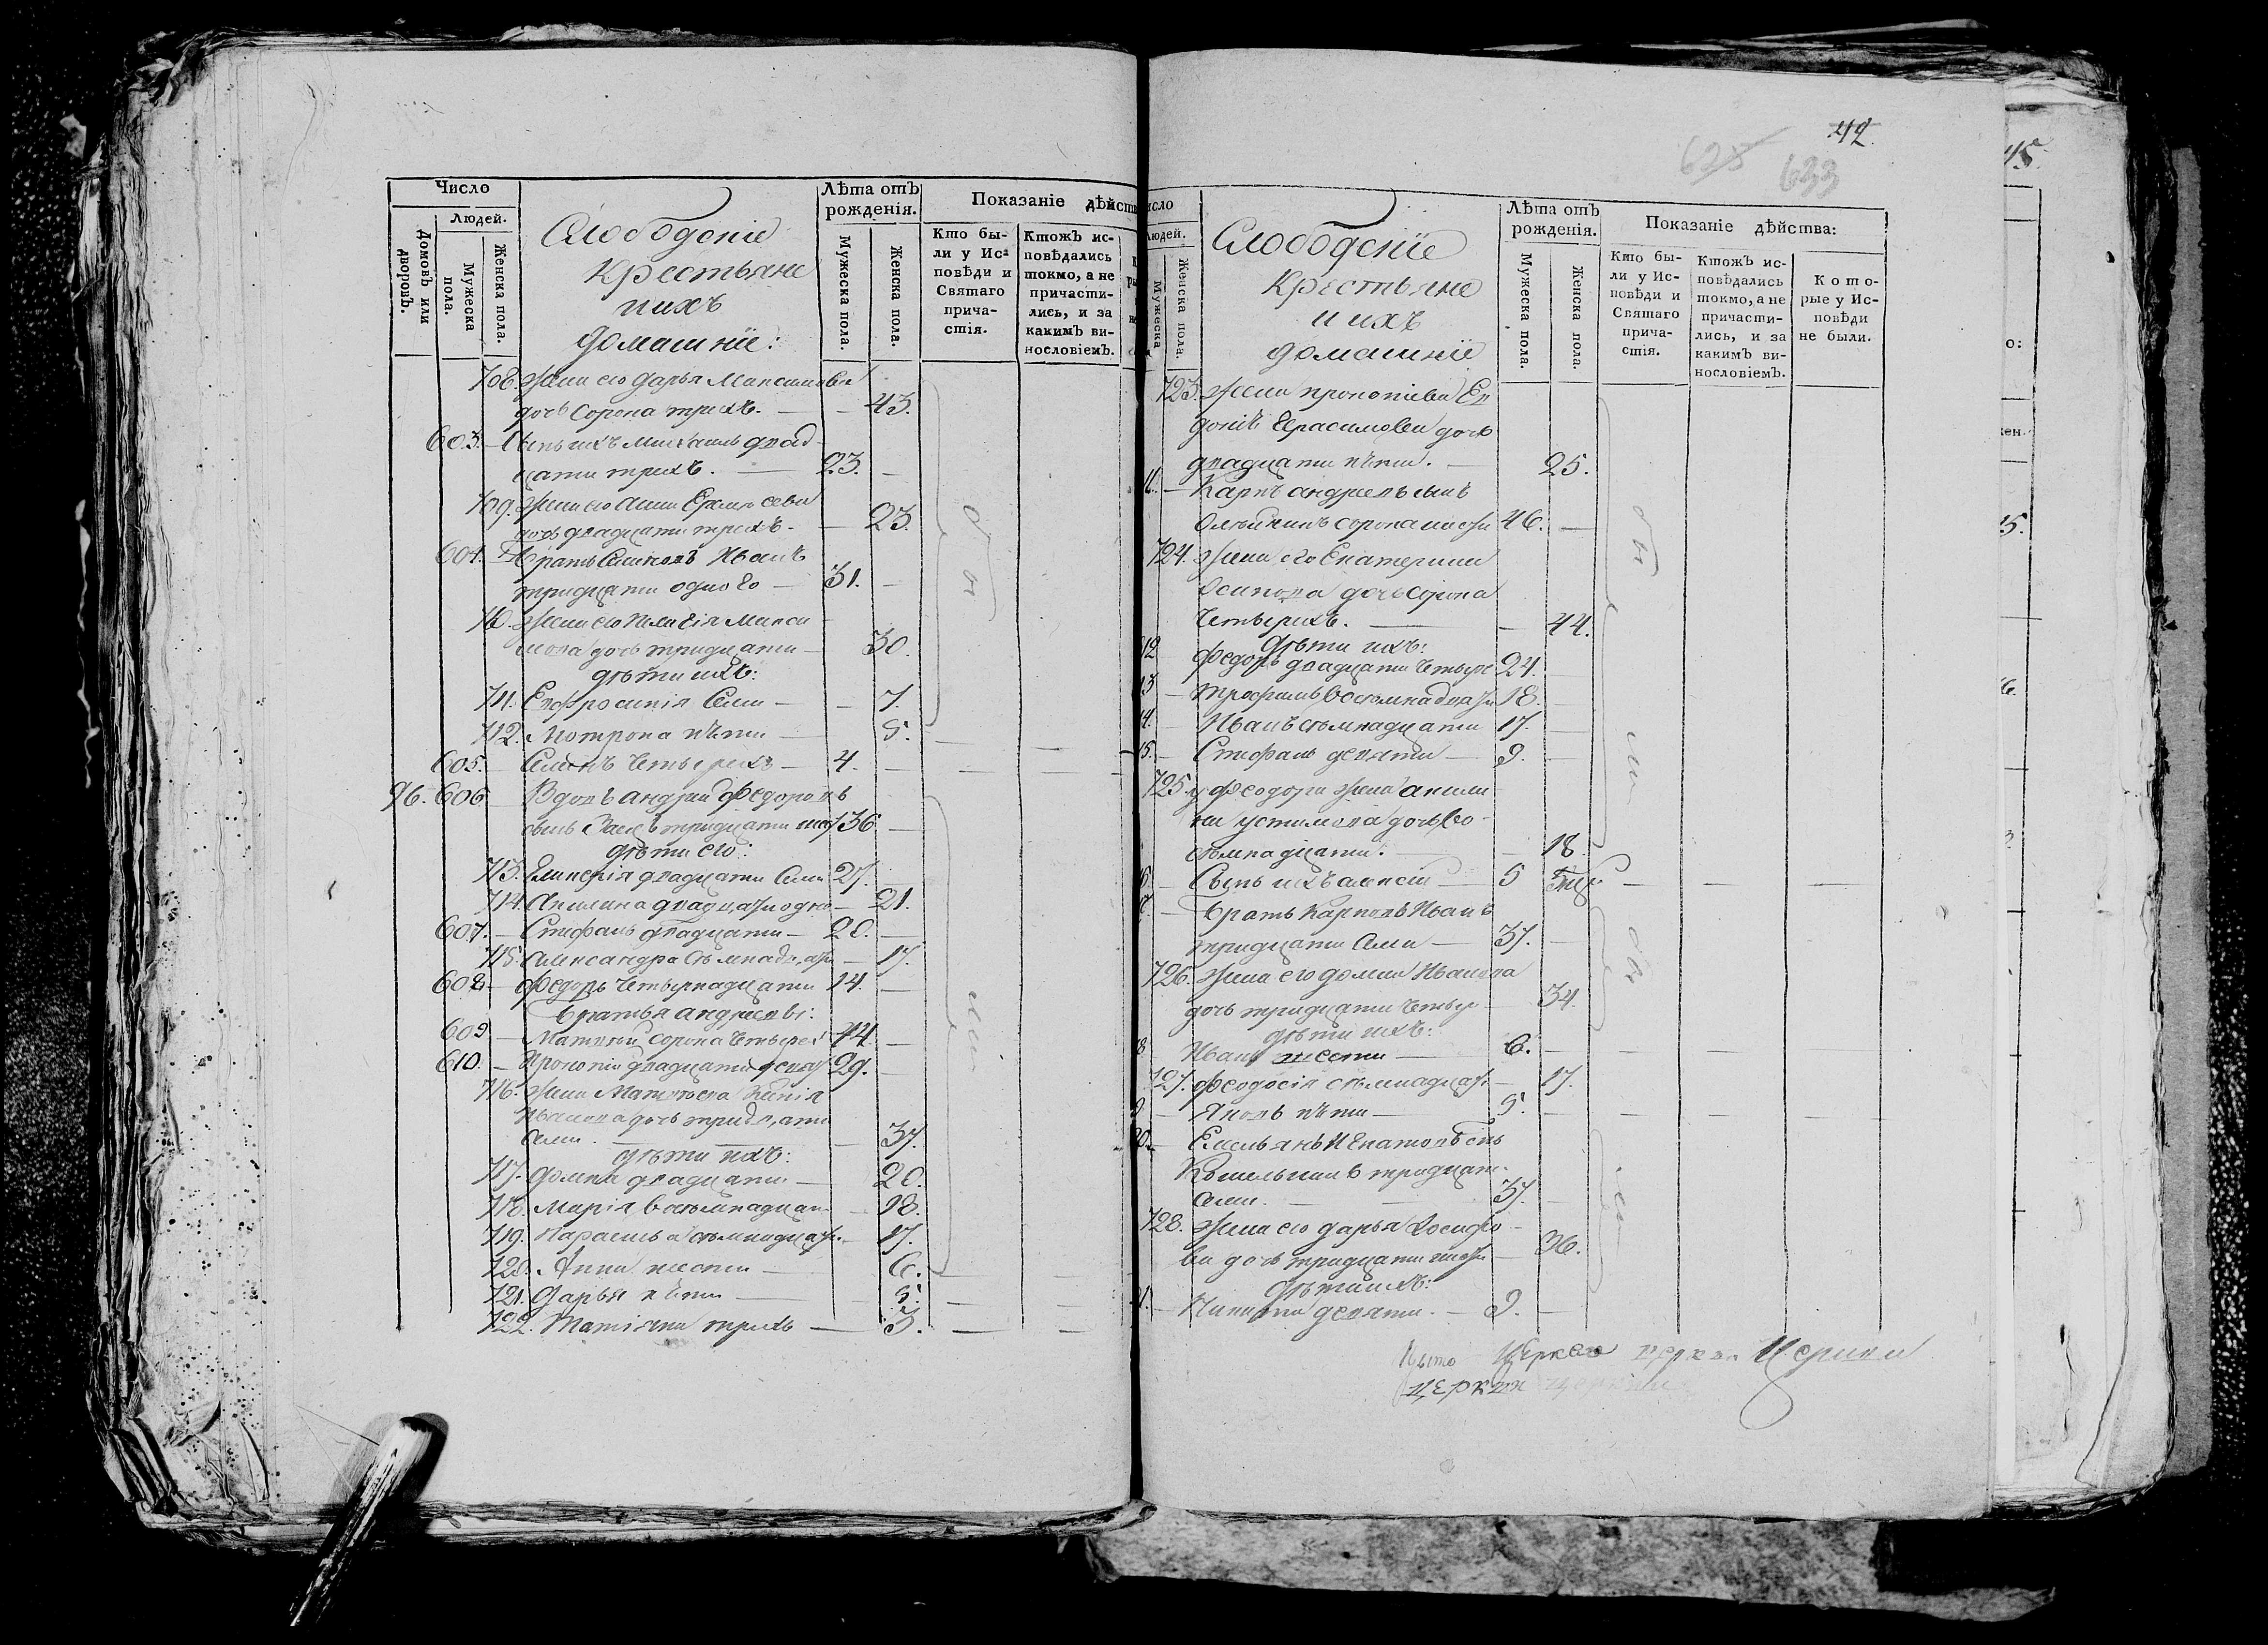 Число
Людей.
Домовъ или дворовъ.
Мужеска пола.
Женска пола.
Слободскіе
Крестьяне
и ихъ
Домашніе:
Лѣта отъ рожденія.
Мужеска пола.
Женска пола.
Показаніе дѣйст
Кто бы-
ли у Ис-
повѣди и
Святаго
прича-
стія.
Ктожъ ис-
повѣдались
токмо, а не
причасти-
лись, и за
какимъ ви-
нословіемъ.
708. Жена его Дарья Максимова
дочь сорока трехъ. — — 43.
603. — Сынъ ихъ Михаилъ двад
цати трехъ. — 23. —
709. Жена его Анна
дочь двадцати трехъ. — 23.
604. — Братъ Иванъ
тридцати одного — 31. —
710. Жена его Пелагія Макси
мова дочь тридцати — 30.
дѣти ихъ:
711. Евфросинія Семи — — 7.
712. Мотрона пяти — 5.
605. Семенъ четырехъ — 4. —
96. 606 Вдовъ Андрей Федоровъ
сынъ Заецъ тридцати шес 36 —
дѣти его:
713. двадцати Семи 27.
714. Акилина двадцати одно — 21.
607. — Стефанъ двадцати — 20. —
715. Александра Семнадцати — 17.
608 — Федоръ четырнадцати 14. —
Братья Андреевы:
609 — Матвей сорока четырех 44. —
610. — Прокопій двадцати девят 29. —
716. Жена Матвеева
Иванова дочь тридцати
семи. — — 37.
дѣти ихъ:
717. Домна двадцати — 20.
718. Марія восемнадцат — 18.
719. Параскева семнадцати — 17.
720. Анна шести — 6.
721. Дарья пяти — 5.
722. Татіяна трехъ — 3.
42.
625
633
исло
Людей.
Мужеска
Женска пола.
Слободскіе
Крестьяне
и ихъ
домашніе
Лѣта отъ рожденія.
Мужеска пола.
Женска пола.
Показаніе дѣйства:
Кто бы-
ли у Ис-
повѣди и
Святаго
прича-
стія.
Ктожъ ис-
повѣдались
токмо, а не
причасти-
лись, и за
какимъ ви-
нословіемъ.
К о т о-
рые у Ис-
повѣди
не были.
723. Жена Прокопіева Ев
докія Герасимова дочь
двадцати пяти. — 25.
Карпъ Андреевъ сынъ
сорока шести 46. —
724. Жена его Екатерина
Осипова дочь сорока
четырехъ. — — 44.
дѣти ихъ:
12 Федоръ двадцати четыре 24.
13 — Трофимъ восемнадцати 18.
14. — Иванъ семнадцати 17. —
15. — Стефанъ девяти — 9. —
725. у Феодора жена Акили
на Устимова дочь во
семнадцати. — — 18.
Сынъ ихъ Алексій — 5
Братъ Карповъ Иванъ
тридцати Семи — 37. —
726. Жена его Домна Иванова
дочь тридцати четыр — 34.
дѣти ихъ:
Иванъ шести — 6. —
727. Феодосія семнадцати — 17.
9 — Яковъ пяти — 5. —
20. — Емельянъ Игнатовъ сынъ
тридцат
семи. — 37. —
728. Жена его Дарья Іосифо
ва дочь тридцати шести — 36.
дѣти ихъ:
Никита девяти. — 9. —
Церкви
церкви
45.